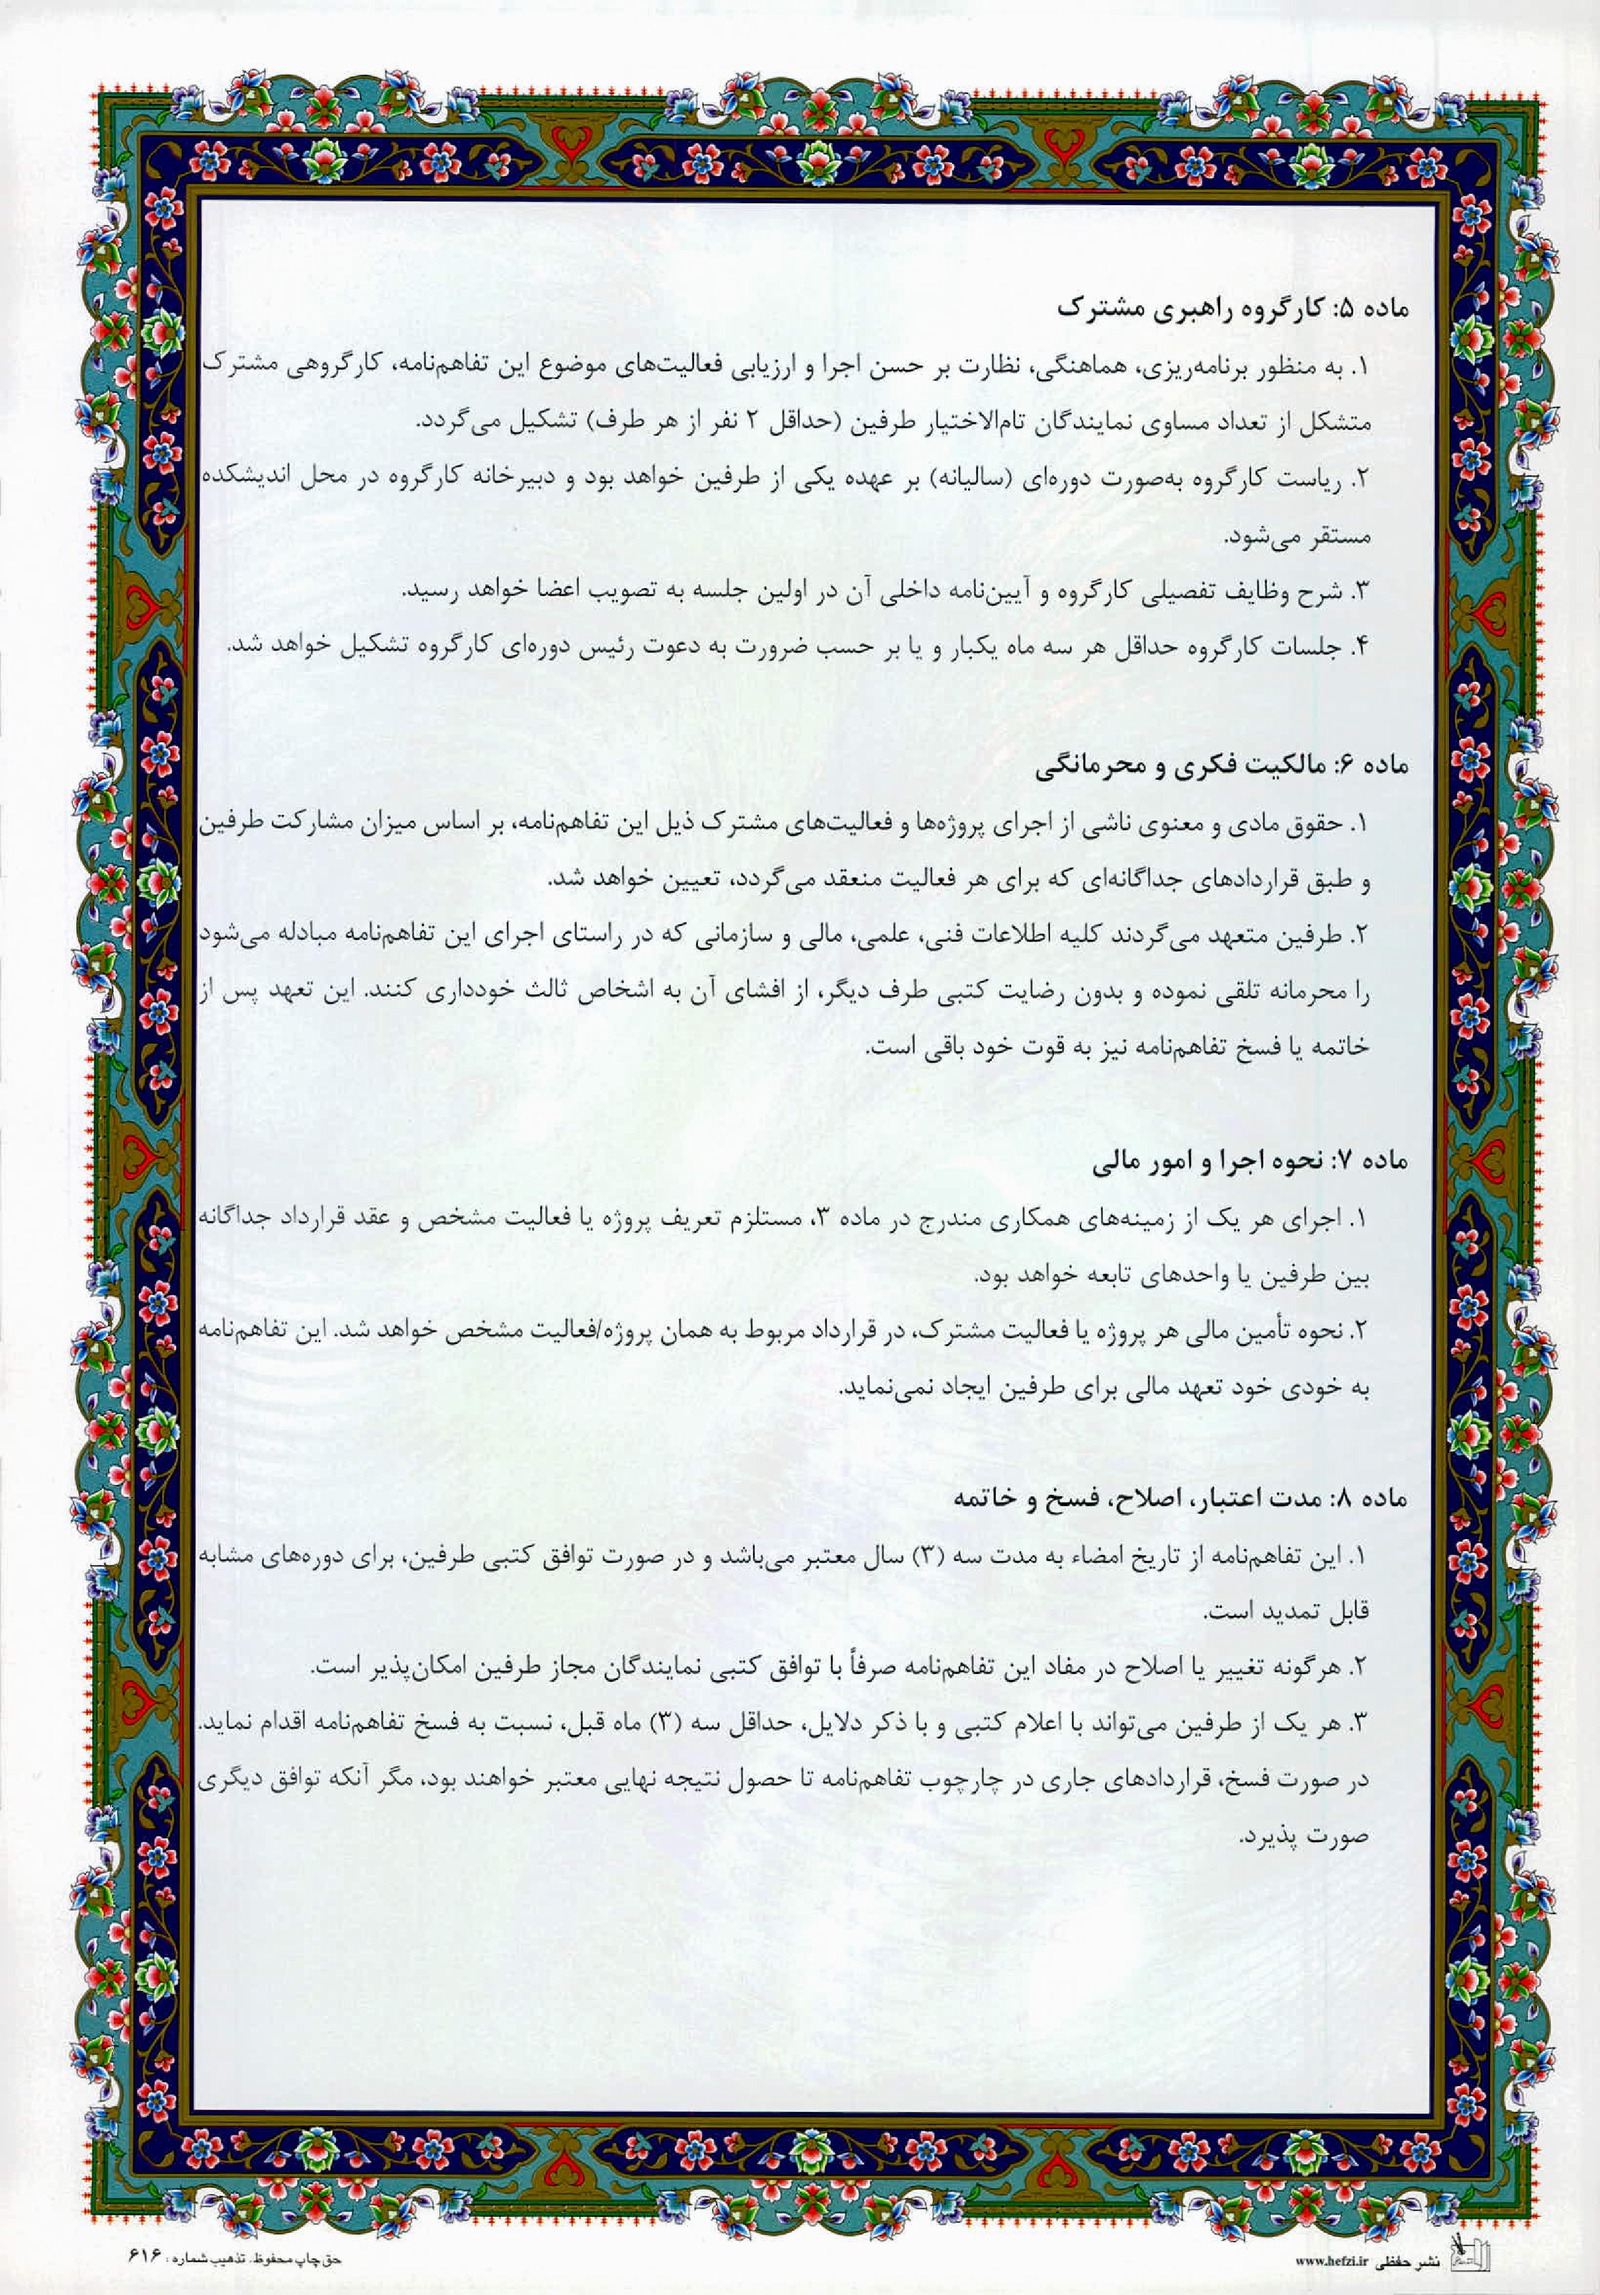 ماده ۵: کارگروه راهبری مشترک
۱. به منظور برنامه‌ریزی، هماهنگی، نظارت بر حسن اجرا و ارزیابی فعالیت‌های موضوع این تفاهم‌نامه، کارگروهی مشترک
متشکل از تعداد مساوی نمایندگان تام‌الاختیار طرفین (حداقل ۲ نفر از هر طرف) تشکیل می‌گردد.
۲. ریاست کارگروه به‌صورت دوره‌ای (سالیانه) بر عهده یکی از طرفین خواهد بود و دبیرخانه کارگروه در محل اندیشکده
مستقر می‌شود.
۳. شرح وظایف تفصیلی کارگروه و آیین‌نامه داخلی آن در اولین جلسه به تصویب اعضا خواهد رسید.
۴. جلسات کارگروه حداقل هر سه ماه یکبار و یا بر حسب ضرورت به دعوت رئیس دوره‌ای کارگروه تشکیل خواهد شد.
ماده ۶: مالکیت فکری و محرمانگی
۱. حقوق مادی و معنوی ناشی از اجرای پروژه‌ها و فعالیت‌های مشترک ذیل این تفاهم‌نامه، بر اساس میزان مشارکت طرفین
و طبق قراردادهای جداگانه‌ای که برای هر فعالیت منعقد می‌گردد، تعیین خواهد شد.
۲. طرفین متعهد می‌گردند کلیه اطلاعات فنی، علمی، مالی و سازمانی که در راستای اجرای این تفاهم‌نامه مبادله می‌شود
را محرمانه تلقی نموده و بدون رضایت کتبی طرف دیگر، از افشای آن به اشخاص ثالث خودداری کنند. این تعهد پس از
خاتمه یا فسخ تفاهم‌نامه نیز به قوت خود باقی است.
ماده ۷: نحوه اجرا و امور مالی
۱. اجرای هر یک از زمینه‌های همکاری مندرج در ماده ۳، مستلزم تعریف پروژه یا فعالیت مشخص و عقد قرارداد جداگانه
بین طرفین یا واحدهای تابعه خواهد بود.
۲. نحوه تأمین مالی هر پروژه یا فعالیت مشترک، در قرارداد مربوط به همان پروژه/فعالیت مشخص خواهد شد. این تفاهم‌نامه
به خودی خود تعهد مالی برای طرفین ایجاد نمی‌نماید.
ماده ۸: مدت اعتبار، اصلاح، فسخ و خاتمه
۱. این تفاهم‌نامه از تاریخ امضاء به مدت سه (۳) سال معتبر می‌باشد و در صورت توافق کتبی طرفین، برای دوره‌های مشابه
قابل تمدید است.
۲. هرگونه تغییر یا اصلاح در مفاد این تفاهم‌نامه صرفاً با توافق کتبی نمایندگان مجاز طرفین امکان‌پذیر است.
۳. هر یک از طرفین می‌تواند با اعلام کتبی و با ذکر دلایل، حداقل سه (۳) ماه قبل، نسبت به فسخ تفاهم‌نامه اقدام نماید.
در صورت فسخ، قراردادهای جاری در چارچوب تفاهم‌نامه تا حصول نتیجه نهایی معتبر خواهند بود، مگر آنکه توافق دیگری
صورت پذیرد.
نشر حفظی www.hefzi.ir
حق چاپ محفوظ. تذهیب شماره: ۶۱۶